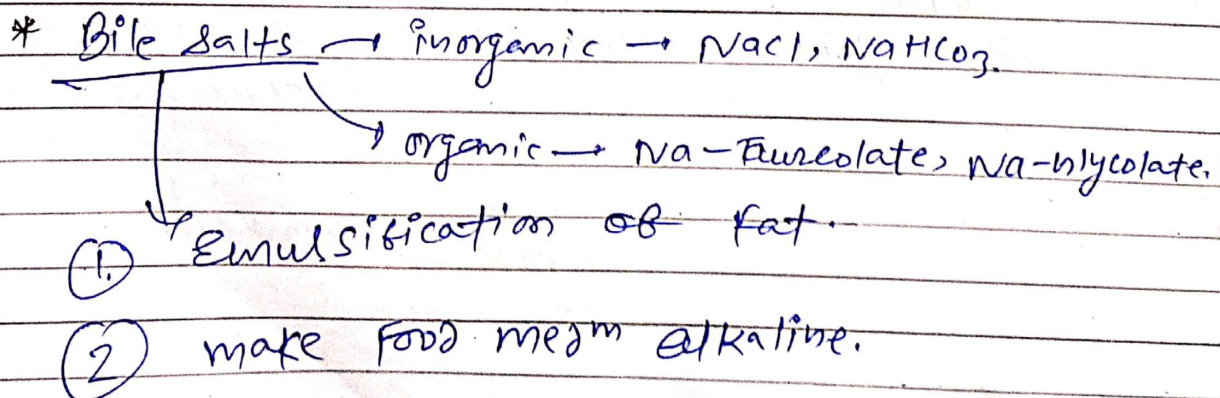 * Bile Salts → inorganic → NaCl, NaHCO3.
organic → Na-Taurcolate, Na-Glycolate.
① Emulsification of Fat.
② make Food medm alkaline.